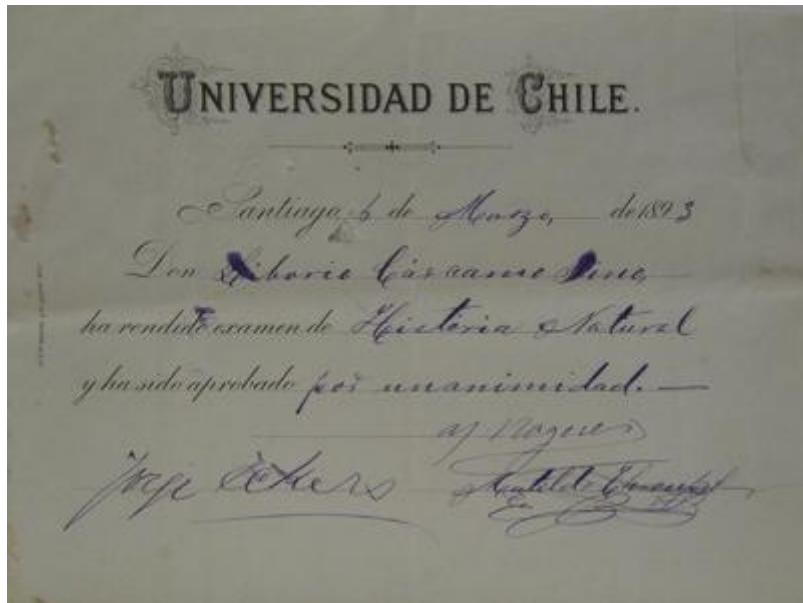 UNIVERSIDAD DE CHILE.
Santiago, 6 de Marzo, de 1893
Don Liborio Cárcamo
ha rendido examen de Historia Natural
y ha sido aprobado por unanimidad.
Nogues
Jorje